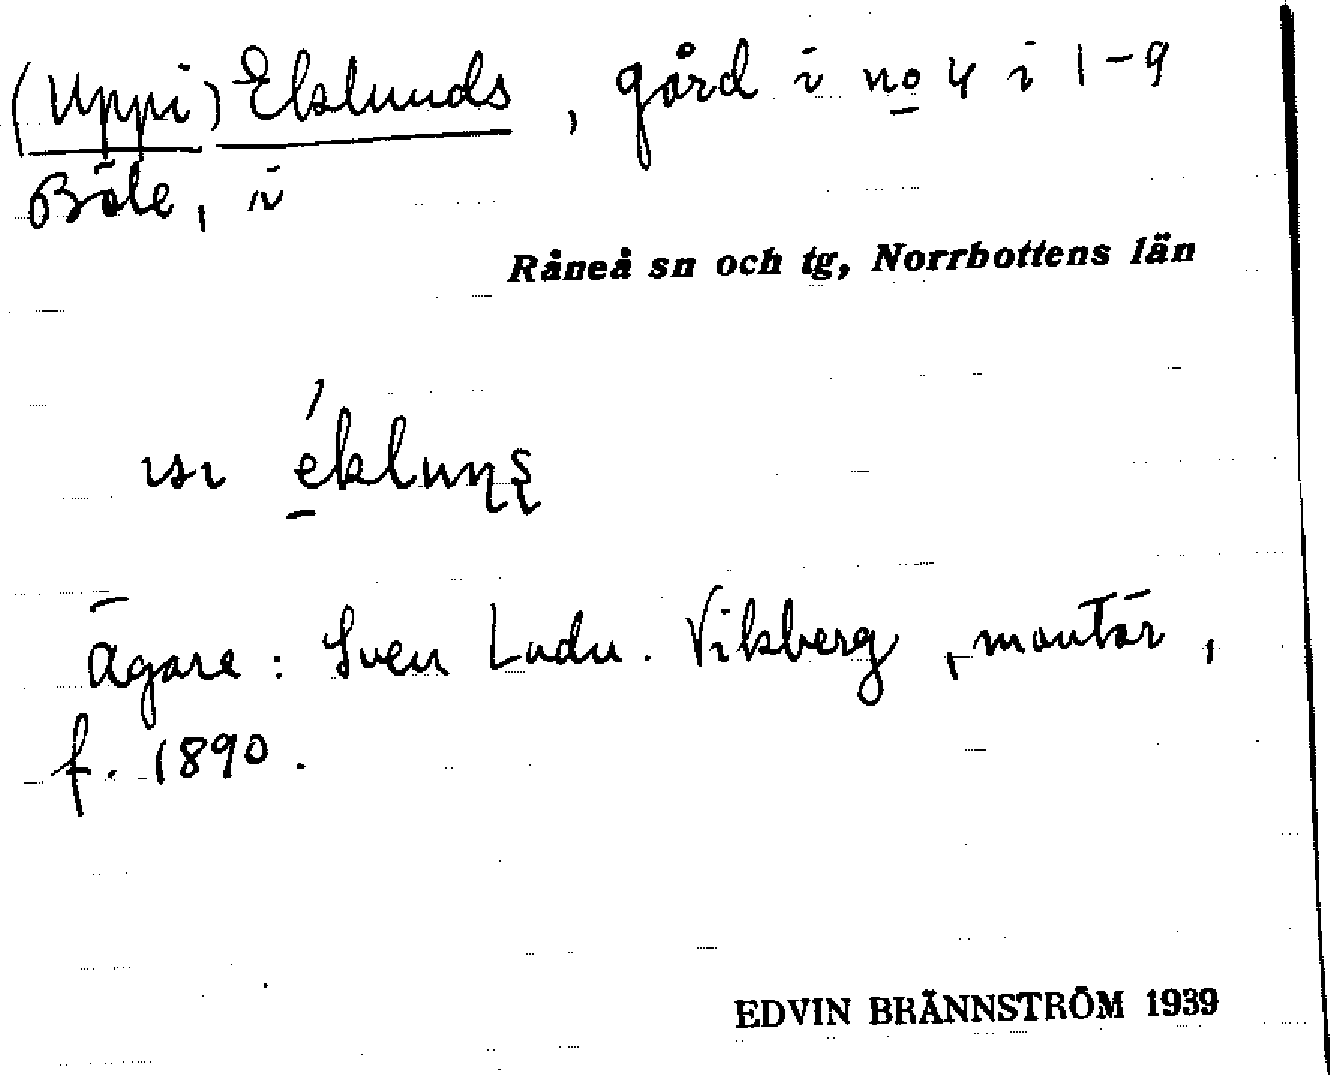 (Uppi) Eklunds, gård i no 4 i 1-9
Böle, i
Råneå sn och tg, Norrbottens län
ékluns
Ägare: Sven Ludv. Vikberg, montör,
f. 1890.
EDVIN BRÄNNSTRÖM 1939